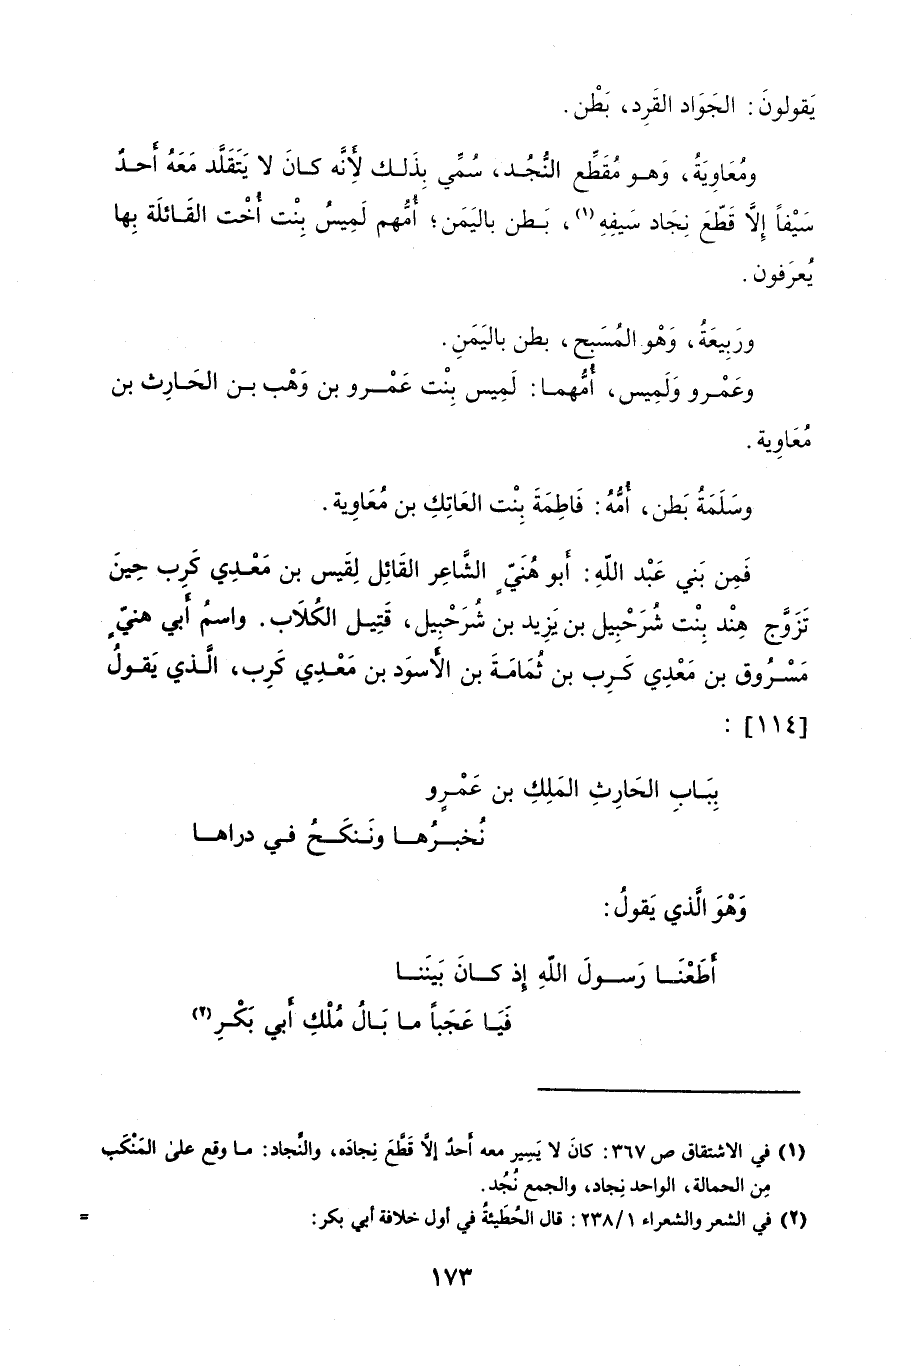 يَقولونَ: الجَوَاد القَرِد، بَطْن.
ومُعَاوِيَةُ، وَهـو مُقَطِّع النُّجُـد، سُمِّي بِذَلـك لأَنَّه كـانَ لا يَتَقَلَّد مَعَهُ أَحـدٌ
سَيْفاً إِلَّا قَطّعَ نِجَاد سَيفِهِ(١)، بَـطن باليَمَن؛ أُمُّهم لَمِيسُ بِنْت أُخْت القَـائلَة بِها
يُعرَفون.
ورَبِيعَةُ، وَهْو المُسَبح، بطن باليَمَنِ.
وعَمْـرو وَلَمِيس، أُمُّهمـا: لَمِيس بِنْت عَمْـرو بن وَهْب بـن الحَـارِث بن
مُعَاوِية.
وسَلَمَةُ بَطن، أُمُّهُ: فَاطِمَةَ بِنْت العَاتِكِ بن مُعَاوِية.
فَمِن بَني عَبْد اللّهِ: أَبو هُنَيّ ٍ الشَّاعِر القَائِل لِقَيس بن مَعْـدِي كَرِب حِينَ
تَزَوَّج هِنْد بِنْت شُرَحْبِيل بن يَزِيد بن شُرَحْبِيل، قَتِيـل الكُلَاب. واسمُ أَبي هنيّ ٍ
مَسْـرُوق بن مَعْدِي كَـرِب بن ثُمَامَـةَ بن الأَسوَد بن مَعْـدِي كَرِب، الَّـذي يَقـولُ
[١١٤]:
بِبَـابِ الحَارِثِ المَلِكِ بن عَمْـرٍو
نُخبـرُهـا ونَـنكَـحُ فـي دراهـا
وَهْوَ الَّذي يَقولُ:
أَطَعْنَـا رَسـولَ اللّهِ إِذ كـانَ بَيَننـا
فَيَـا عَجَبـاً مـا بَـالُ مُلْكِ أَبي بَكْـرِ(٢)
(١) في الاشتقاق ص ٣٦٧: كانَ لا يَسِير معه أَحدٌ إلَّا قَطَّعَ نِجادَه، والنِّجاد: مـا وقع علىٰ المَنْكَب
مِن الحمالة، الواحد نِجاد، والجمع نُجُد.
(٢) في الشعر والشعراء ١/٢٣٨: قال الحُطَيئةُ في أول خلافة أبي بكر: =
١٧٣